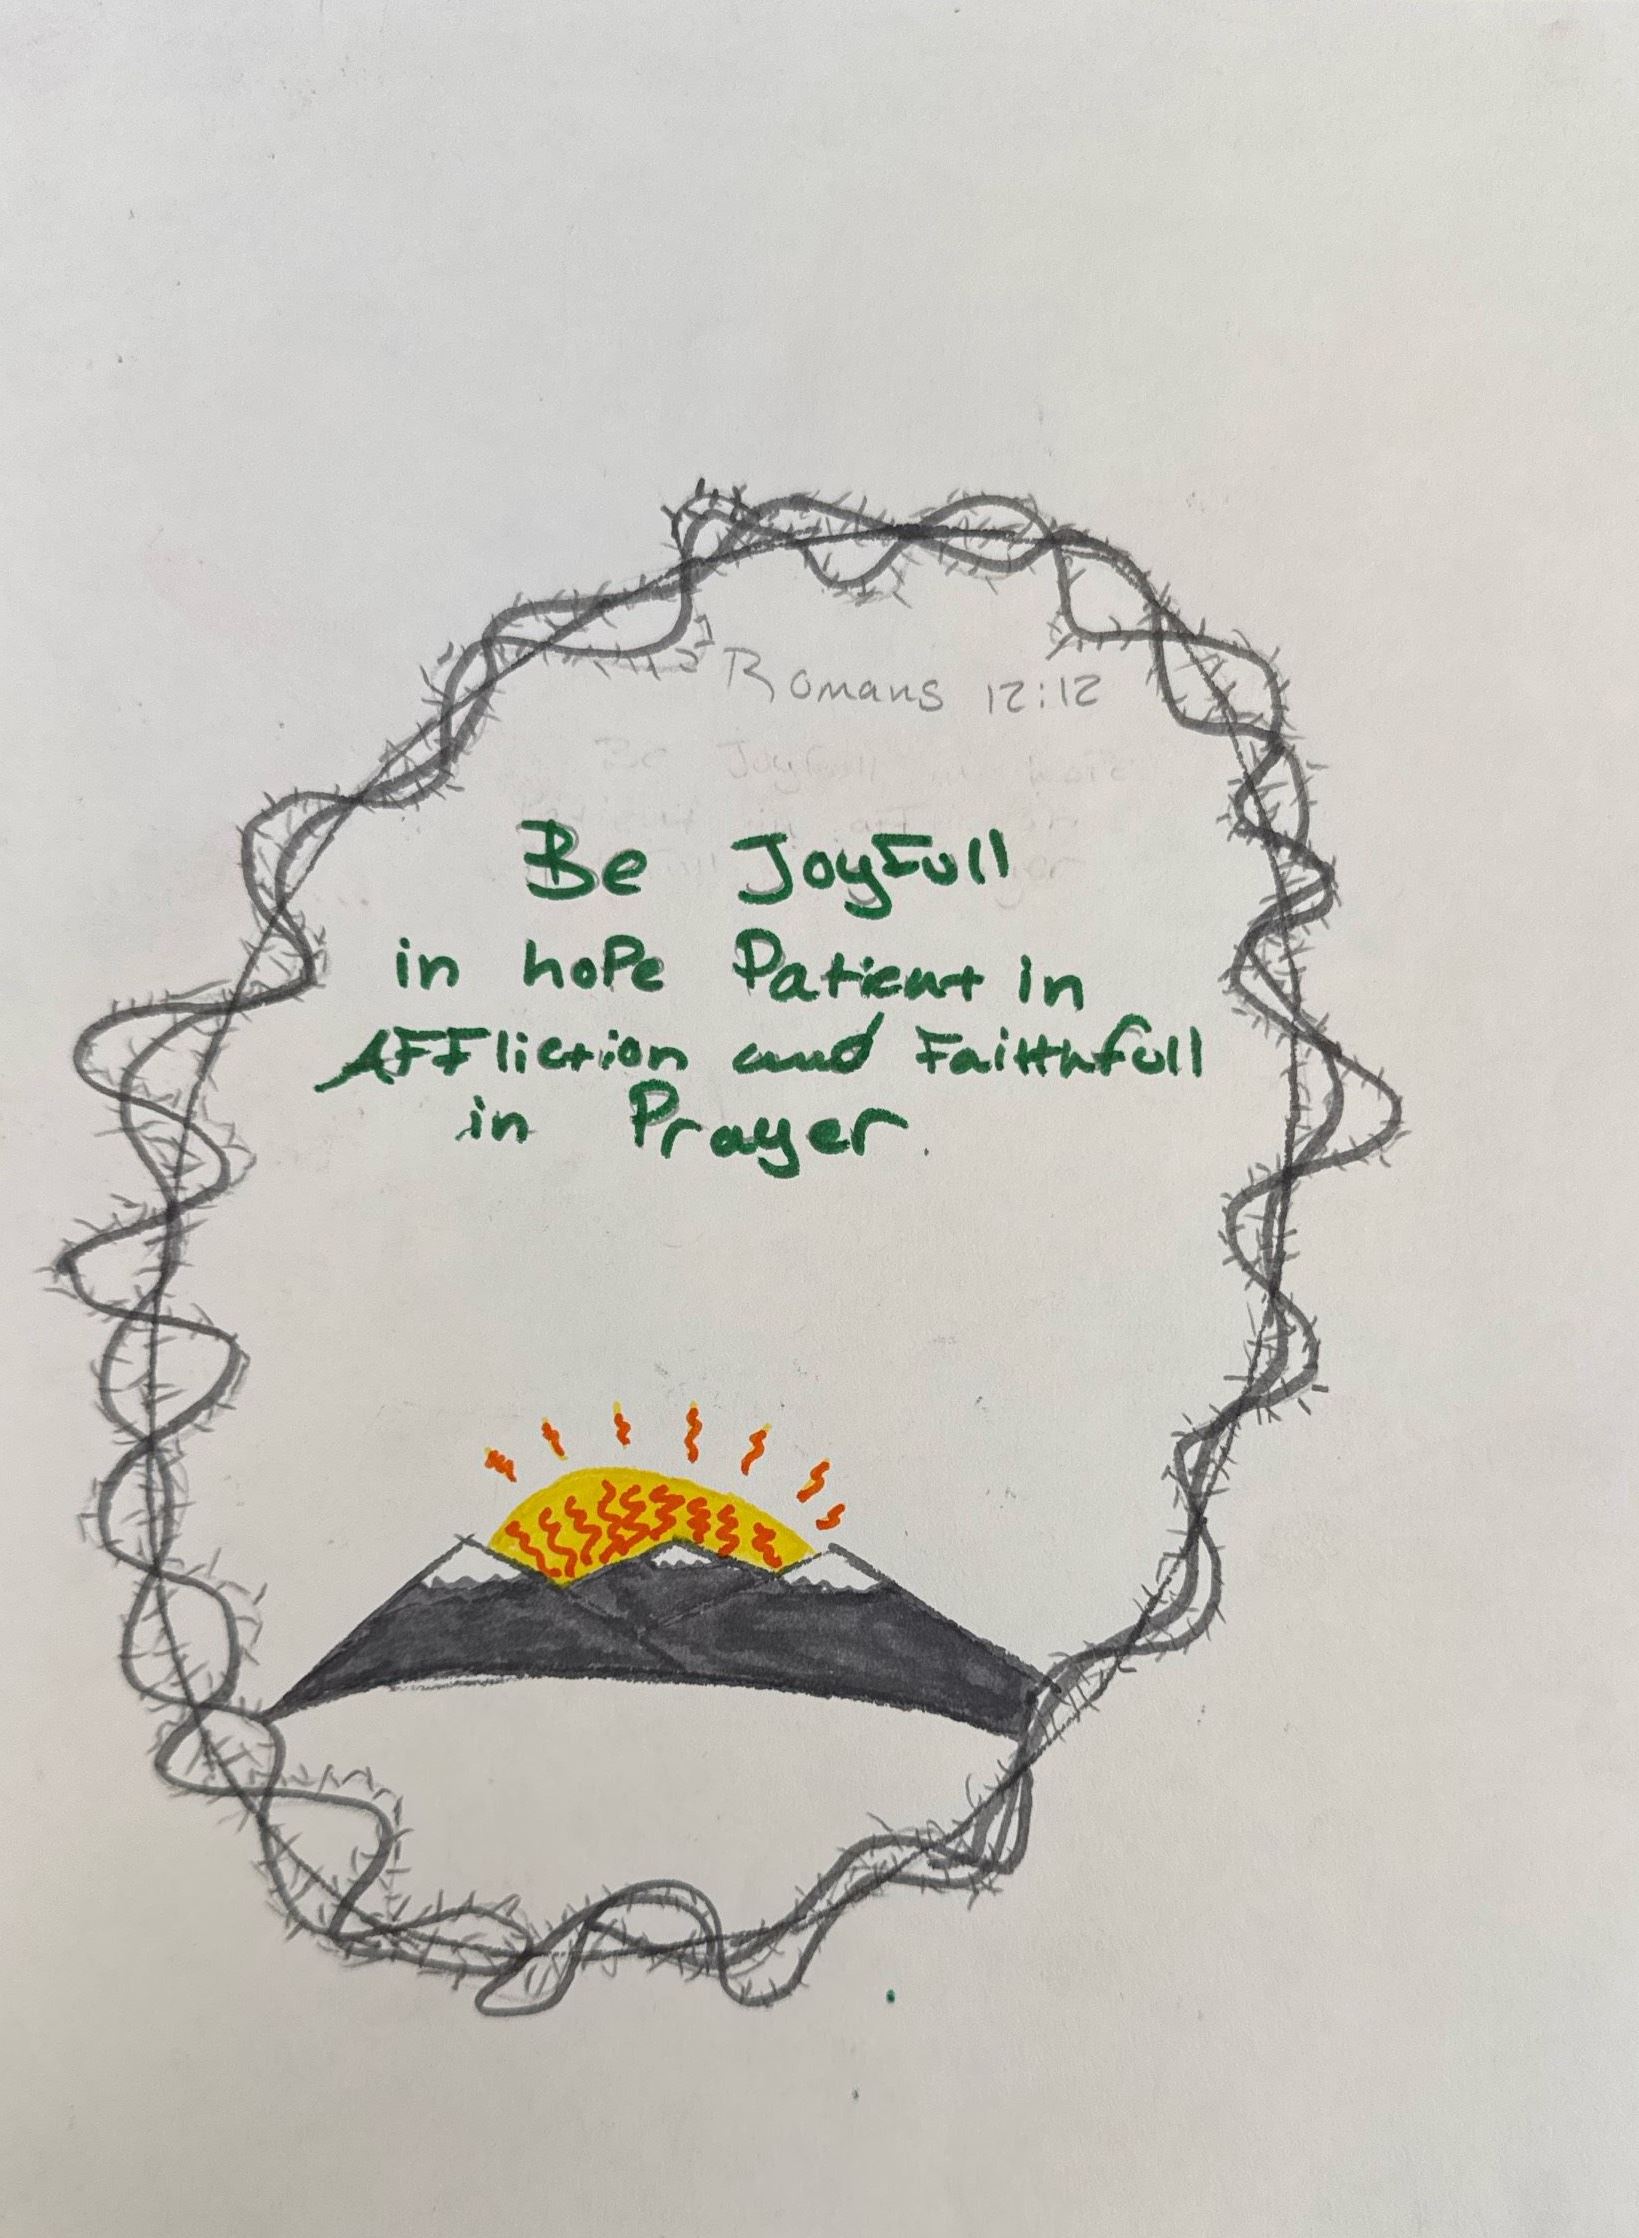 Romans 12:12
Be Joyfull in hope
Be JoyFull
in hoPe Patient in
AFFliction and Faithfull
in Prayer.